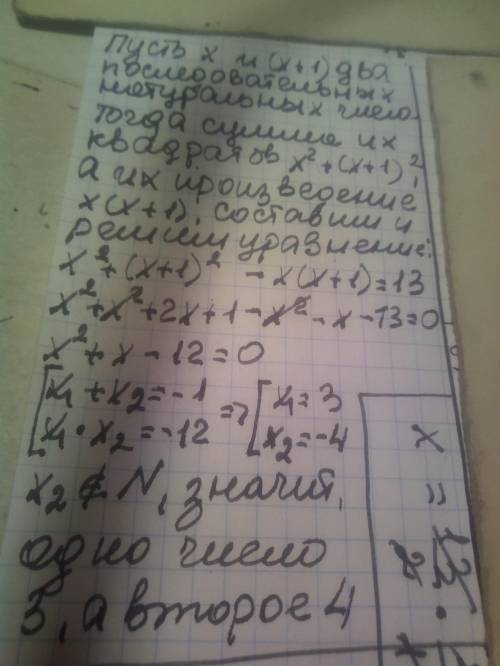 Пусть x и (x+1) два
последовательных
натуральных число
тогда сумма их
квадратов x²+(x+1)²,
а их произведение
x(x+1), составим и
решим уравнение:
x²+(x+1)² -x(x+1)=13
x²+x²+2x+1-x²-x-13=0
x²+x-12=0
[x₁+x₂=-1
x₁·x₂=-12 => [x₁=3
x₂=-4
x₂∉N, значит,
одно число
3, а второе 4
x =